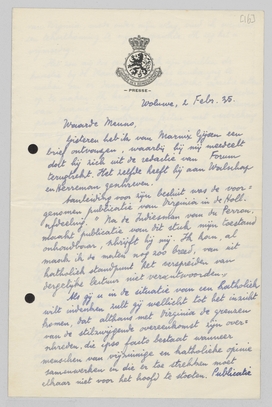 - PRESSE -
Woluwe, 2 Febr. 35.
Waarde Menno,
Gisteren heb ik van Marnix Gijsen een
brief ontvangen, waarbij hij mij meedeelt
dat hij zich uit de redactie van Forum
terugtrekt. Het zelfde heeft hij aan Walschap
en Herreman geschreven.
Aanleiding voor zijn besluit was de voor-
genomen publicatie van Virginia in de Holl.
afdeeling. "Na de Indiesman van du Perron
maakt publicatie van dit stuk mijn toestand
onhoudbaar, schrijft hij mij. Ik kan, al
maak ik de malen nog zoo breed, van uit
katholiek standpunt het verspreiden van
dergelijke lectuur niet verantwoorden."
Als gij u in de situatie van een katholiek
wilt indenken zult gij wellicht tot het inzicht
komen, dat althans met Virginia de grenzen
van de stilzwijgende overeenkomst zijn over-
schreden, die ipso facto bestaat wanneer
menschen van vrijzinnige en katholieke opinie
samenwerken in die er toe strekken moet
elkaar niet voor het hoofd te stooten. Publicatie